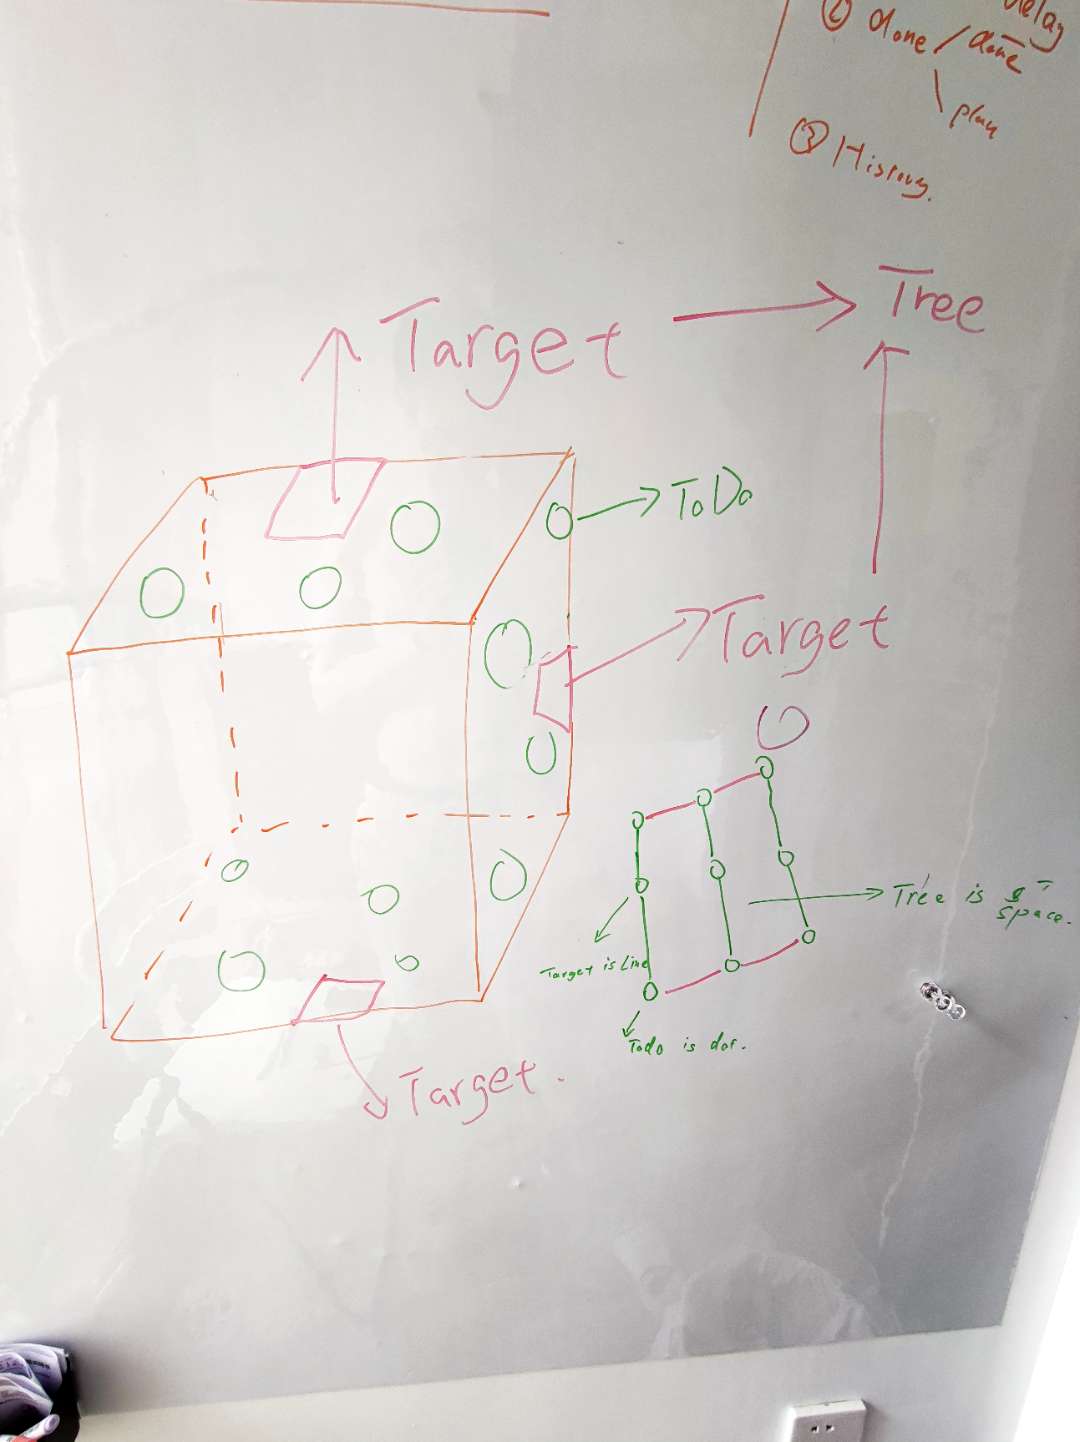 delay
② done / done
plan
③ History.
Target
Tree
ToDo
Target
Tree is a
space.
Target is Line
Todo is dot.
Target.